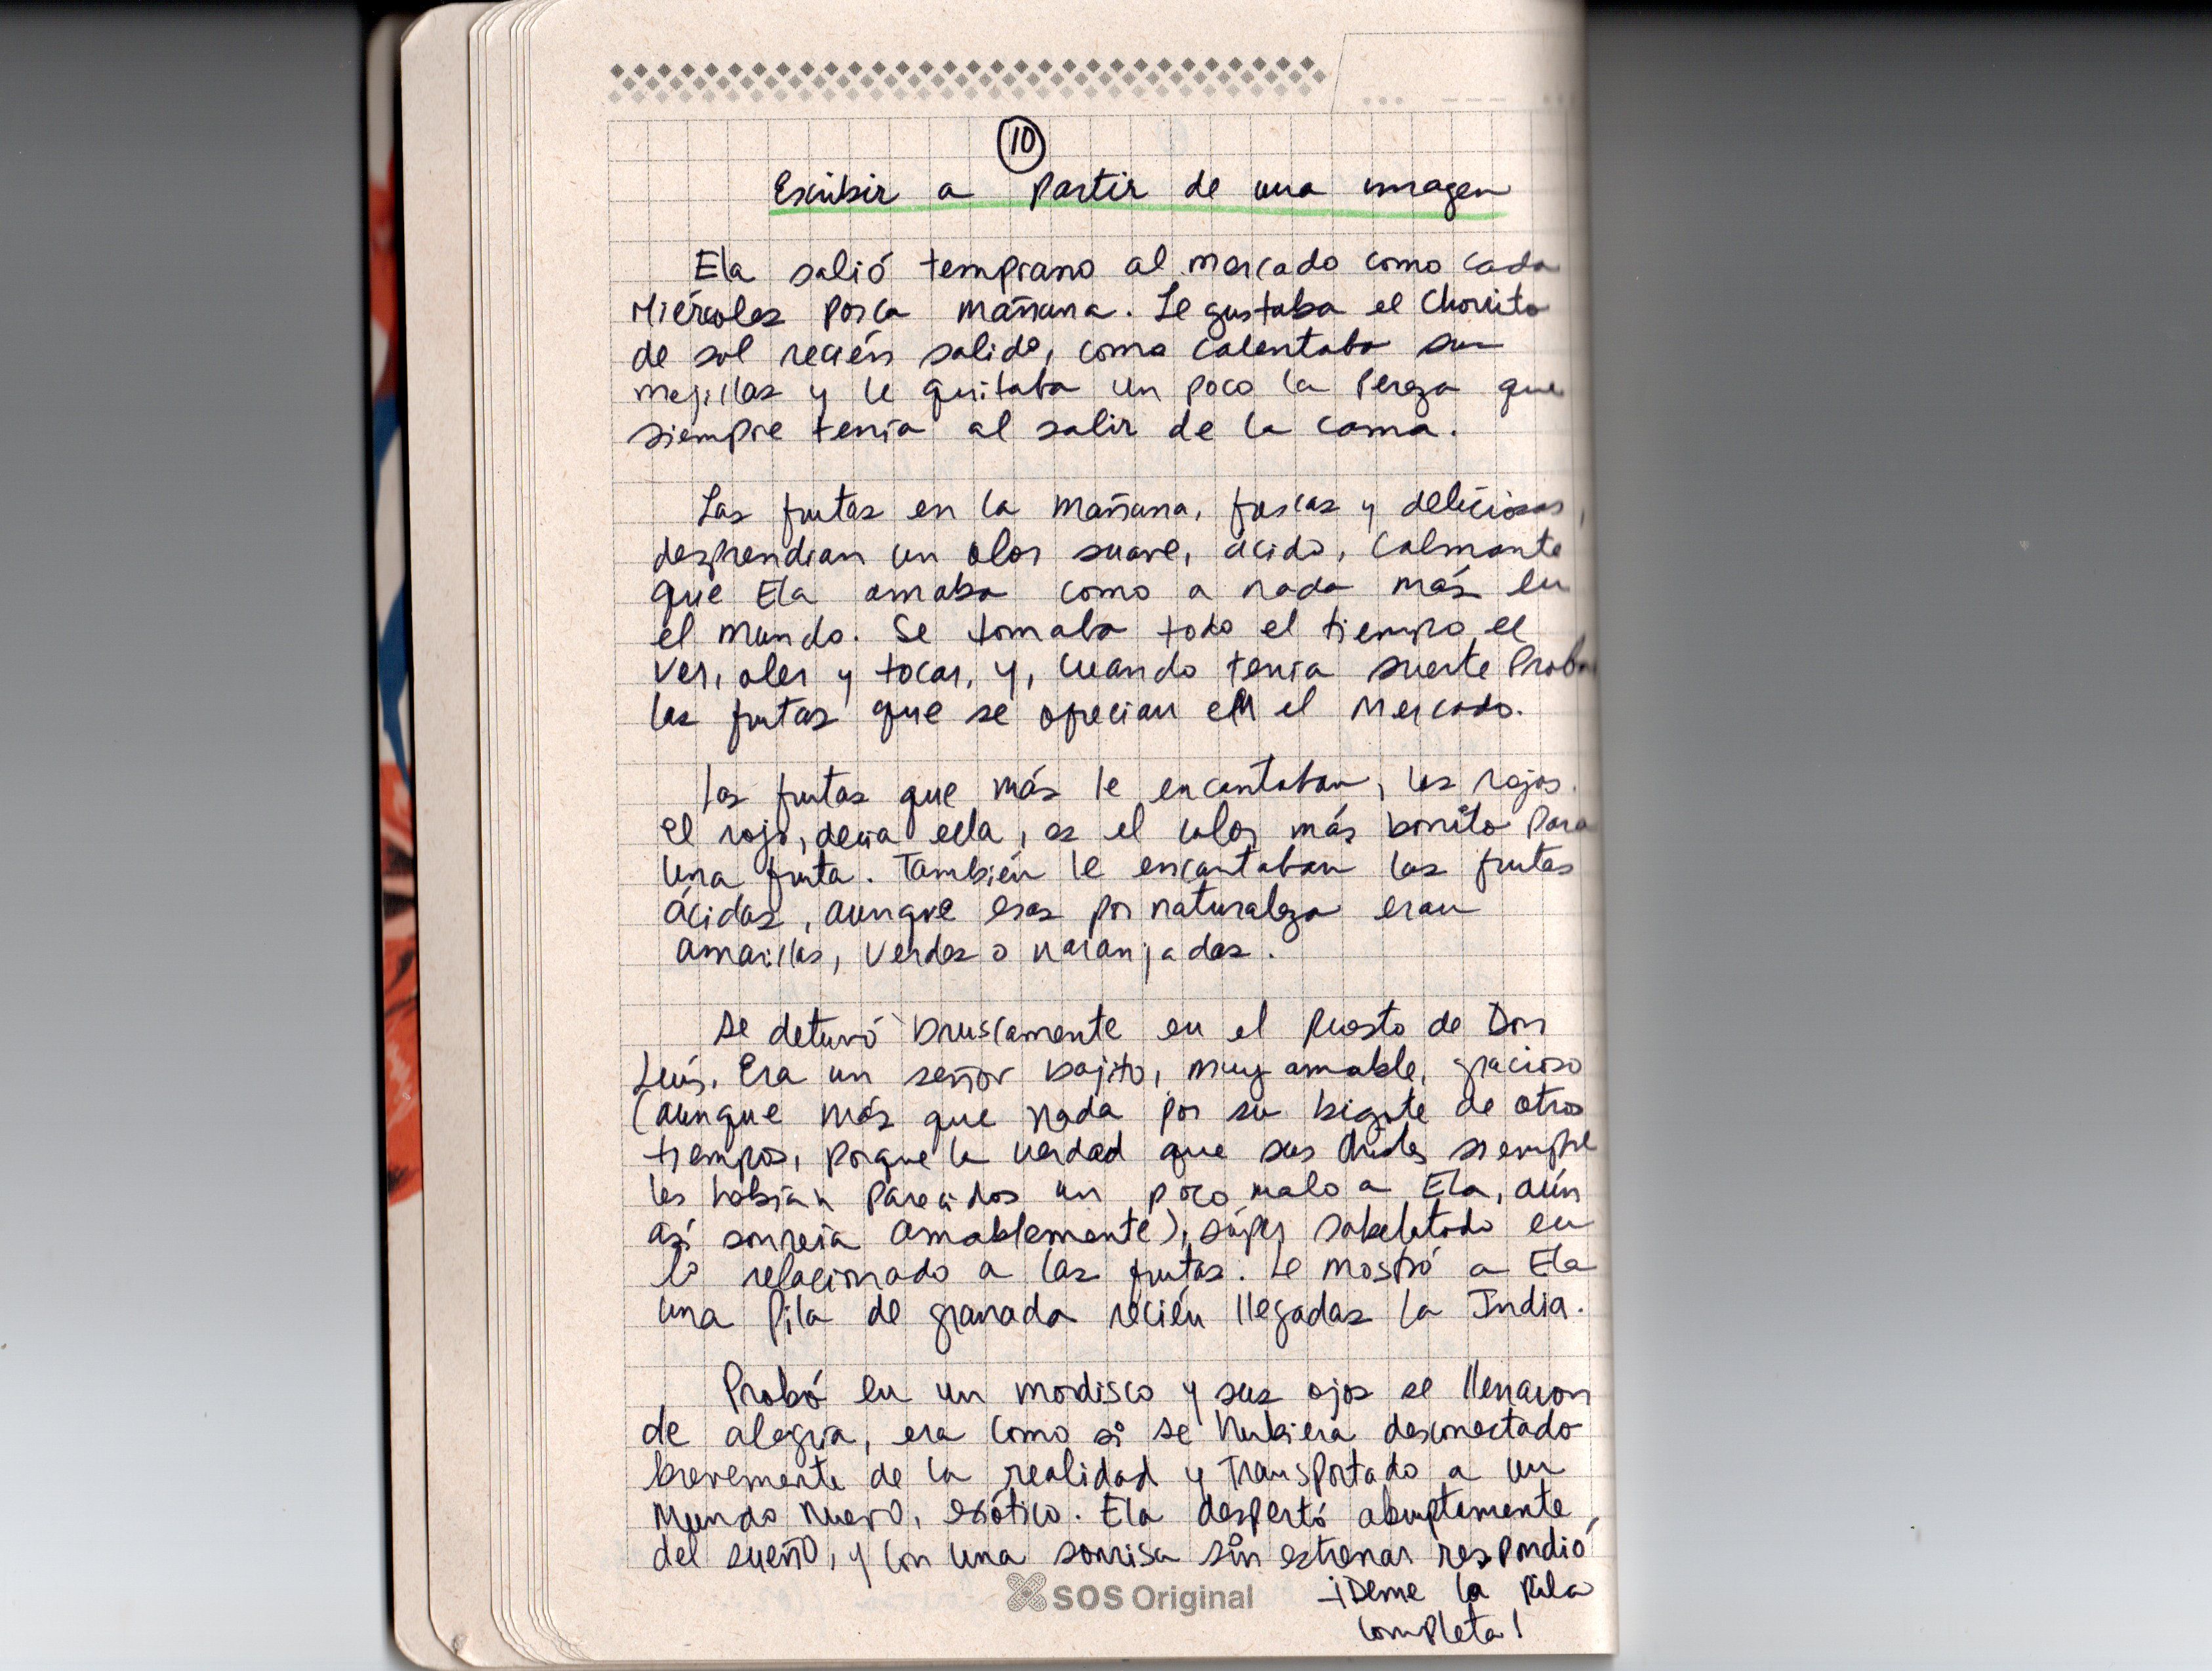 10
Escribir a partir de una imagen
Ela salió temprano al mercado como cada
Miércoles por la mañana. Le gustaba el chorrito
de sol recién salido, como calentaba sus
mejillas y le quitaba un poco la pereza que
siempre tenía al salir de la cama.
Las frutas en la mañana, frescas y deliciosas,
desprendian un olor suave, ácido, calmante
que Ela amaba como a nada más en
el mundo. Se tomaba todo el tiempo el
ver, oler y tocar, y, cuando tenia suerte probar
las frutas que se ofrecian en el mercado.
Las frutas que más le encantaban, las rojas.
El rojo, decia ella, es el color más bonito para
una fruta. También le encantaban las frutas
ácidas, aunque esas por naturaleza eran
amarillas, verdes o naranjadas.
Se detuvó bruscamente en el puesto de Don
Luís. Era un señor bajito, muy amable, gracioso
(aunque más que nada por su bigote de otros
tiempos, porque la verdad que sus chistes siempre
les habían parecidos un poco malo a Ela, aún
así sonreía amablemente), súper sabelotodo en
lo relacionado a las frutas. Le mostró a Ela
una pila de granada recién llegadas la India.
Probó en un mordisco y sus ojos se llenaron
de alegria, era como si se hubiera desconectado
brevemente de la realidad y transportado a un
mundo nuevo, exótico. Ela despertó abruptamente
del sueño, y con una sonrisa sin estrenar respondió
-¡Deme la pila
completa!
SOS Original